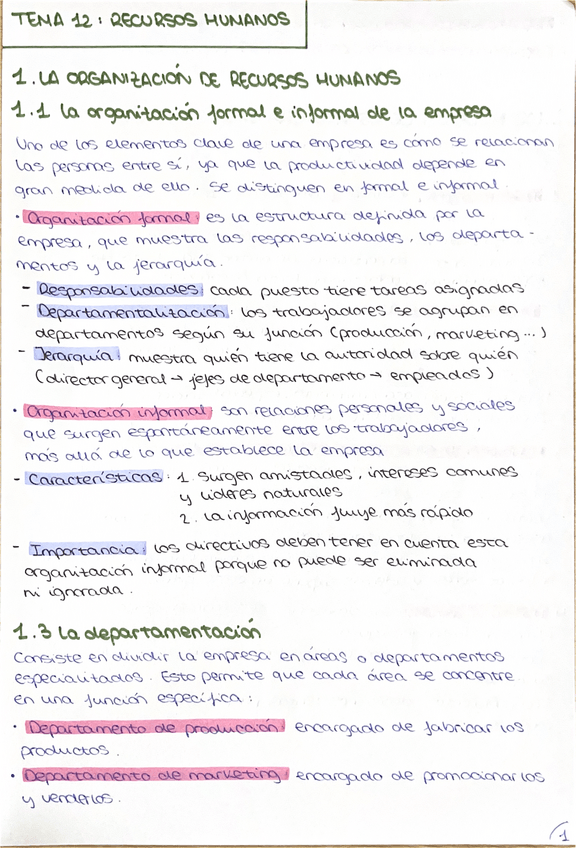 TEMA 12: RECURSOS HUMANOS
1. LA ORGANIZACIÓN DE RECURSOS HUMANOS
1.1 La organización formal e informal de la empresa
Uno de los elementos clave de una empresa es cómo se relacionan
las personas entre sí, ya que la productividad depende en
gran medida de ello. Se distinguen en formal e informal.
· Organización formal: es la estructura definida por la
empresa, que muestra las responsabilidades, los departa-
mentos y la jerarquía.
- Responsabilidades: cada puesto tiene tareas asignadas
- Departamentalización: los trabajadores se agrupan en
departamentos según su función (producción, marketing...)
- Jerarquía: muestra quién tiene la autoridad sobre quién
(director general → jefes de departamento → empleados)
· Organización informal: son relaciones personales y sociales
que surgen espontáneamente entre los trabajadores,
más allá de lo que establece la empresa
- Características: 1. Surgen amistades, intereses comunes
y líderes naturales
2. La información fluye más rápido
- Importancia: los directivos deben tener en cuenta esta
organización informal porque no puede ser eliminada
ni ignorada.
1.3 La departamentación
Consiste en dividir la empresa en áreas o departamentos
especializados. Esto permite que cada área se concentre
en una función específica:
· Departamento de producción: encargado de fabricar los
productos.
· Departamento de marketing: encargado de promocionar los
y venderlos.
1